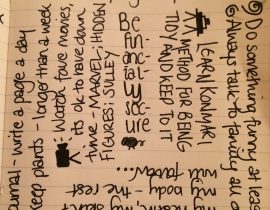 Do something funny at least
Always talk to family all o
LEARN KONMARI
METHOD FOR BEING
TIDY AND KEEP TO IT
Be
fin-
anc-
ially
sec-
ure
Watch fave movies,
its ok to have down
time - MARVEL; HIDDEN
FIGURES; SULLEY
keep plants - longer than a week
urnal - write a page a day
my heart, my
my body - the rest
will follow